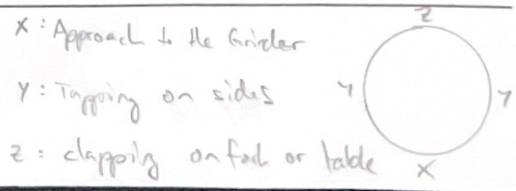 Z
X : Approach to the Grinder
Y : Tapping on sides
Y
Y
Z : clapping on or table
X